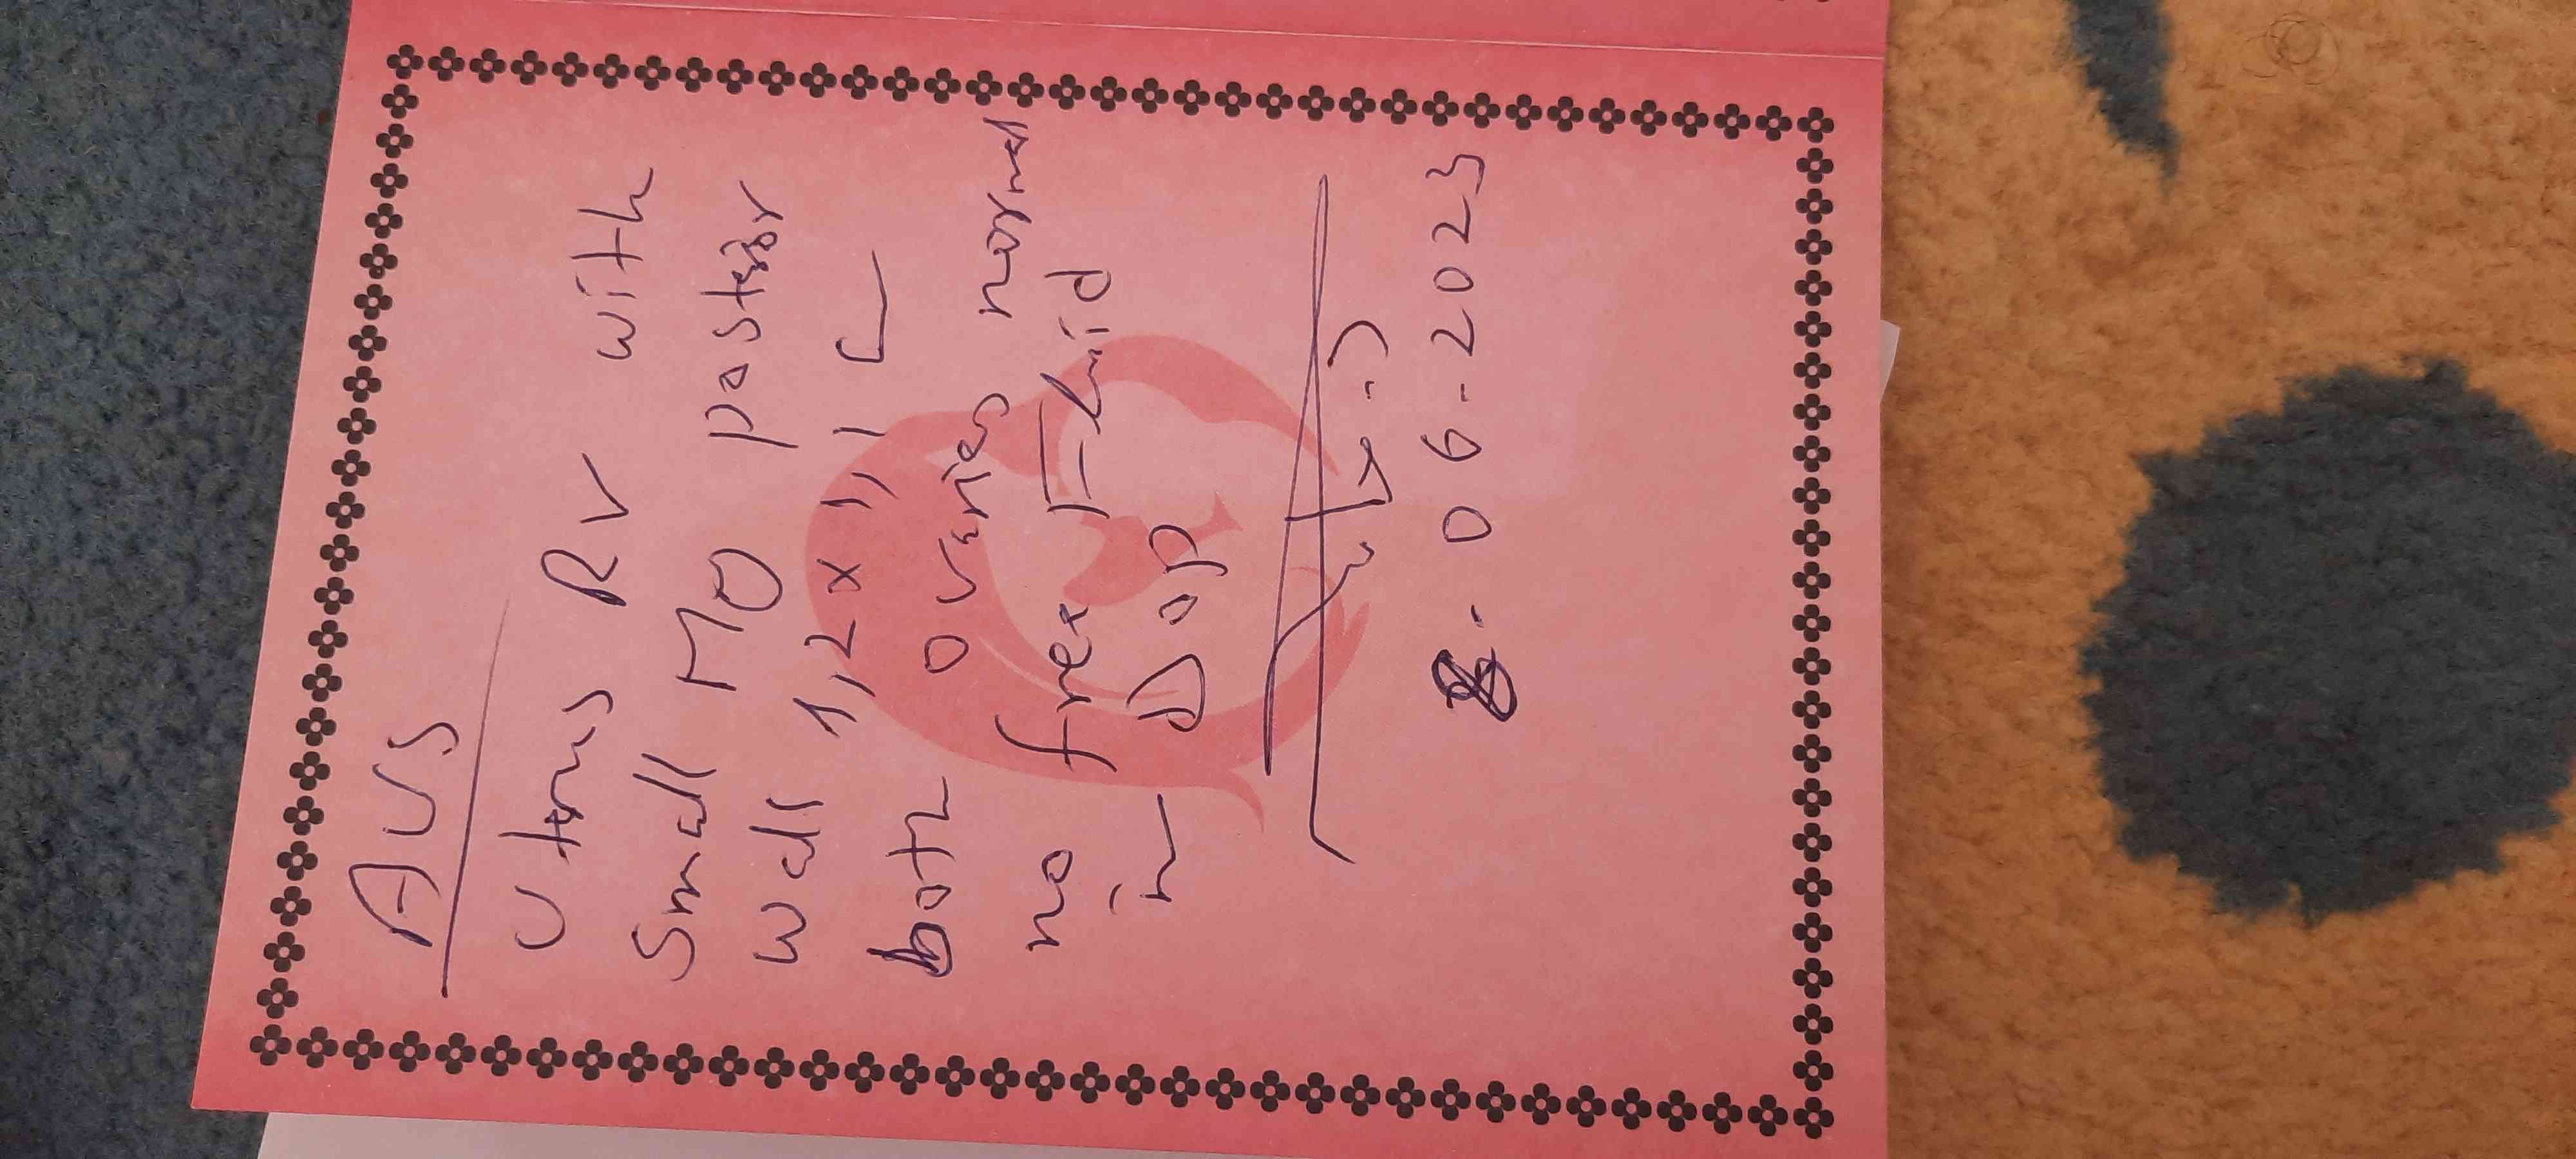 AUS
Uterus RV with
Small MO posterior
Wall 1,2 x 1,1 C
both ovaries normal
no free Fluid
in DOP
8-06-2023